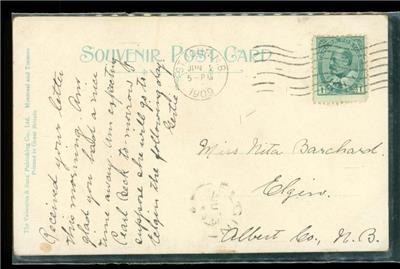 SOUVENIR POST CARD
The Valentine & Sons' Publishing Co., Ltd., Montreal and Toronto
Printed in Great Britain
JUN 1
5-PM
1909
Received your letter
this morning. Am
glad you had a nice
time away. Am expecting
Pearl Beck to morrow &
suppose she will go to
Elgin the following day
Miss Nita Barchard.
Elgin
Albert Co., N.B.